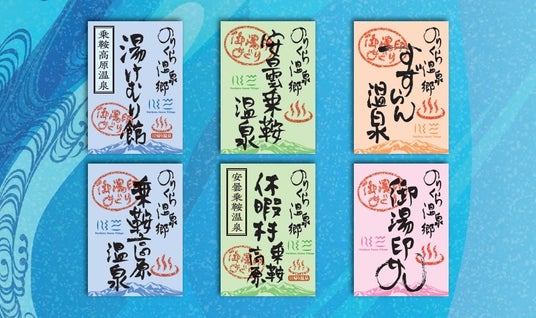 のりくら温泉郷
乗鞍高原温泉
湯けむり館
御湯印めぐり
のりくら温泉郷
安曇乗鞍温泉
御湯印めぐり
のりくら温泉郷
すずらん温泉
御湯印めぐり
のりくら温泉郷
乗鞍高原温泉
御湯印めぐり
のりくら温泉郷
安曇乗鞍温泉
休暇村乗鞍高原
御湯印めぐり
のりくら温泉郷
御湯印めぐり